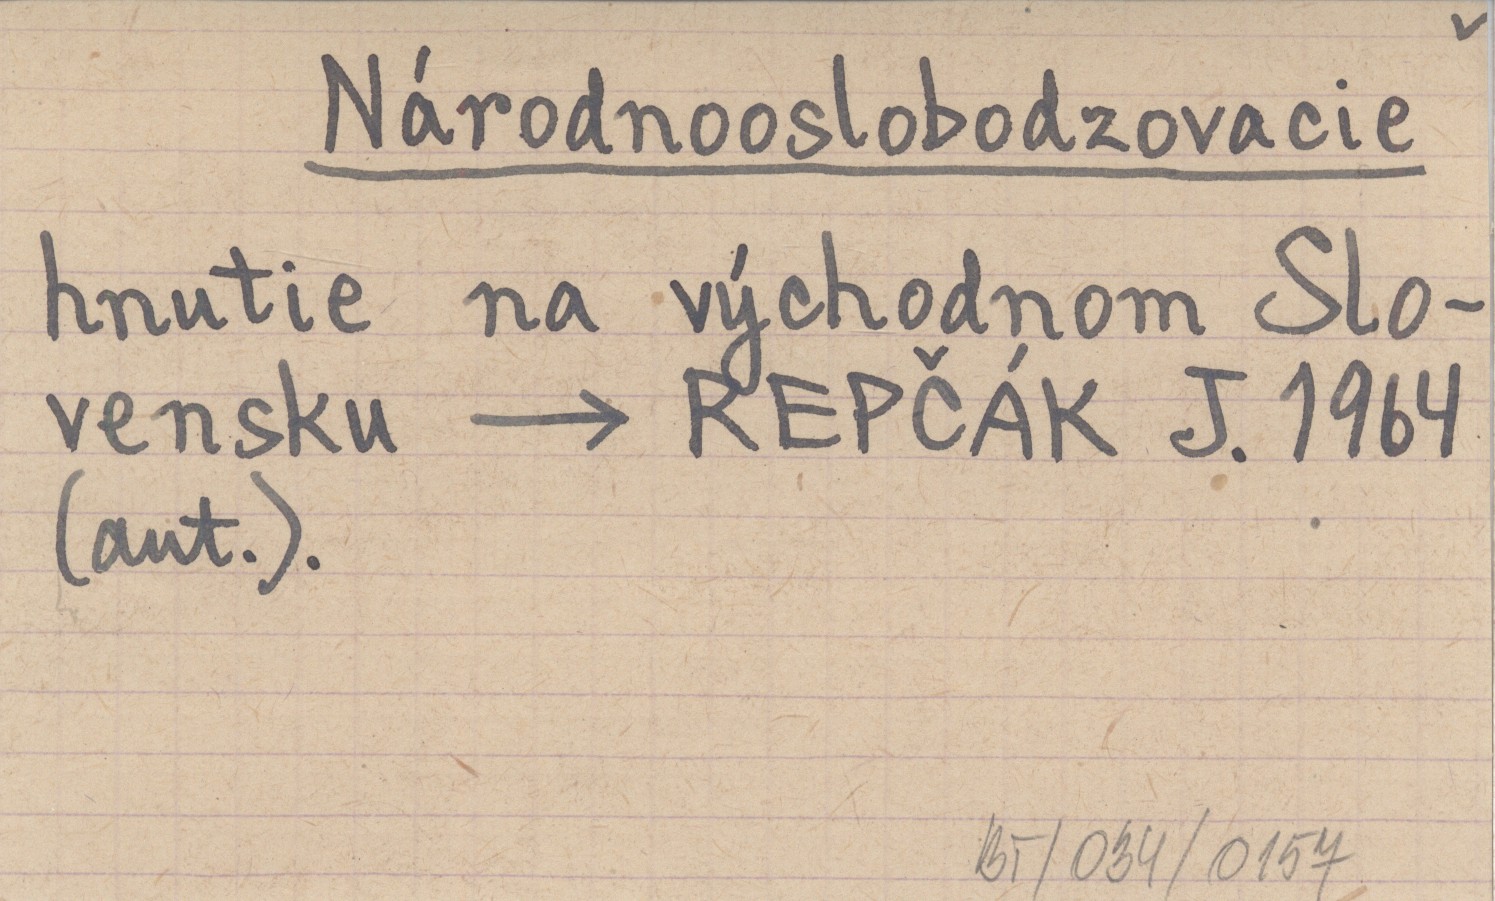 Národnooslobodzovacie
hnutie na východnom Slo-
vensku → REPČÁK J. 1964
(aut.).
BT/034/0157